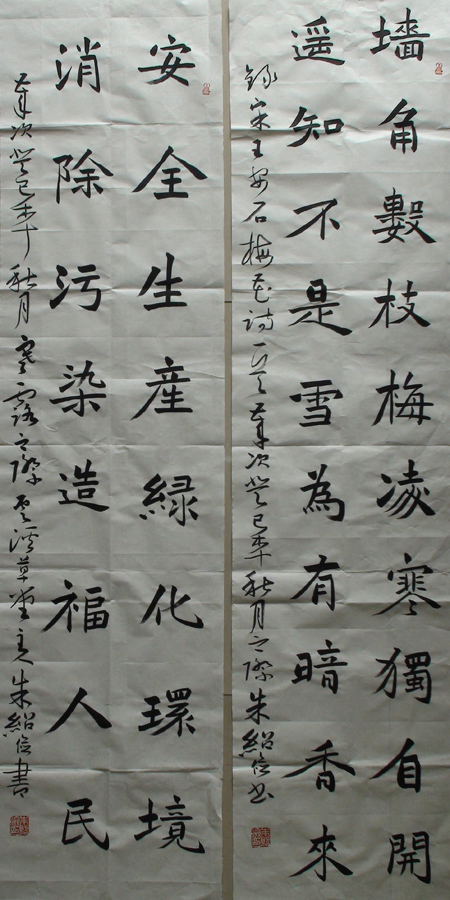 墙角數枝梅凌寒獨自開
遥知不是雪為有暗香來
錄宋王安石梅花詩一首岁次癸巳年秋月之際朱紹信书
安全生産緑化環境
消除污染造福人民
岁次癸巳年秋月寒露之際
草堂主人朱紹信書